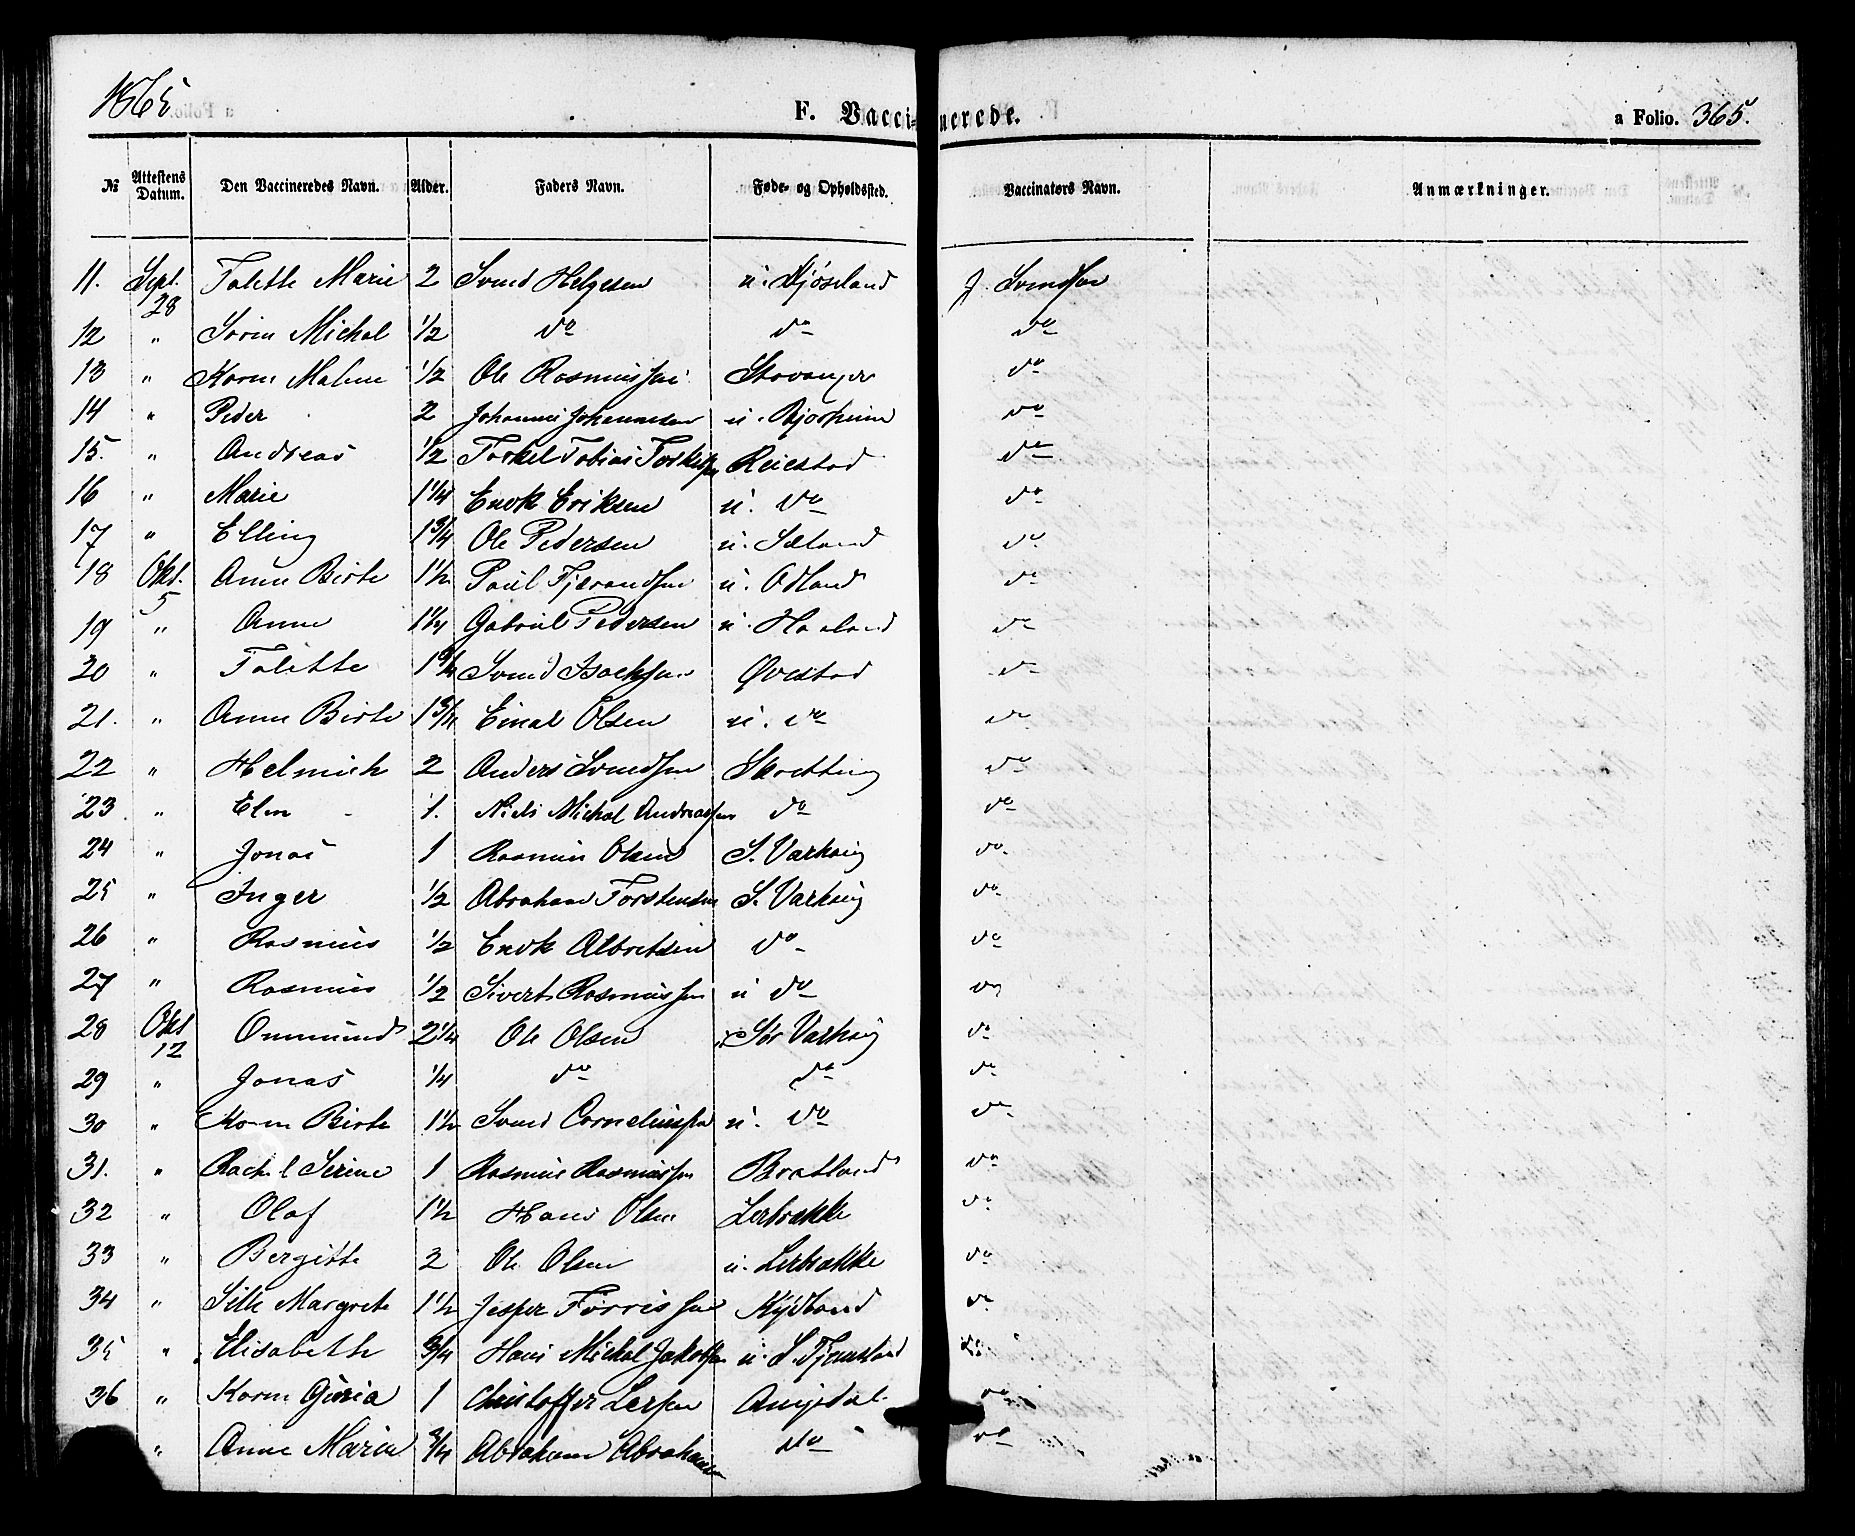 1865
F. Vaccinerede.
a Folio. 365.
№ Attestens Datum. Den Vaccineredes Navn. Alder. Faders Navn. Føde- og Opholdssted. Vaccinators Navn. Anmærkninger.
11. Sept. 28 Talette Marie 2 Svend Helgesen u. Kjøseland J. Svendsen
12 " Sørin Michal 1/2 do do do
13 " Karen Malene 1/2 Ole Rasmussen Stavanger do
14 " Peder 2 Johannes Johannesen u. Bjørheim do
15. " Andreas 1/2 Torkel Tobias Torkelsen Reiestad do
16 " Marie 1 1/4 Enok Eriksen u. do do
17 " Elling 1 3/4 Ole Pedersen u. Sæland do
18 Okt. 5 Anne Birte 1 1/2 Paul Fjerandsen u. Odland do
19 " Anne 1 1/4 Gabriel Pedersen u. Haaland do
20 " Talette 1 3/4 Svend Isaksen Øvestad do
21. " Anne Birte 1 3/4 Einar Olsen u. do do
22 " Helmich 2 Anders Svendsen Skretting do
23 " Elen 1. Niels Michal Andreassen do do
24 " Jonas 1 Rasmus Olsen S. Varhoug do
25 " Inger 1/2 Abraham Torstensen S. Varhoug do
26 " Rasmus 1/2 Enok Albretsen do do
27 " Rasmus 1/2 Sivert Rasmussen u do do
28 Okt 12 Ommund 2 1/4 Ole Olsen Sør Varhoug do
29 " Jonas 1/4 do do do
30 " Karen Birte 1 1/2 Svend Corneliussen u. do do
31. " Rachel Serine 1 Rasmus Rasmussen Bratland do
32 " Olaf 1 1/2 Hans Olsen Lerbrække do
33 " Bergitte 2 Ole Olsen u. Lerbrække do
34 " Silla Margrete 1 1/2 Jesper Tørrissen Kydland do
35 " Elisabeth 3/4 Hans Michal Jakobsen u. L. Tjensland do
36 " Karen Guria 1 Christoffer Larsen Aarrestad do
" Anne Marie 3/4 Abraham Abrahamsen do do